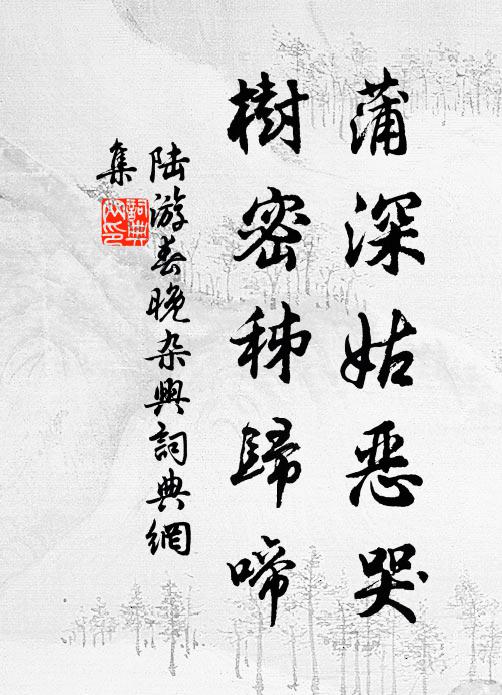 蒲深姑恶哭
樹密秭歸啼
陆游春晚杂興詞典網
集
詞典網印